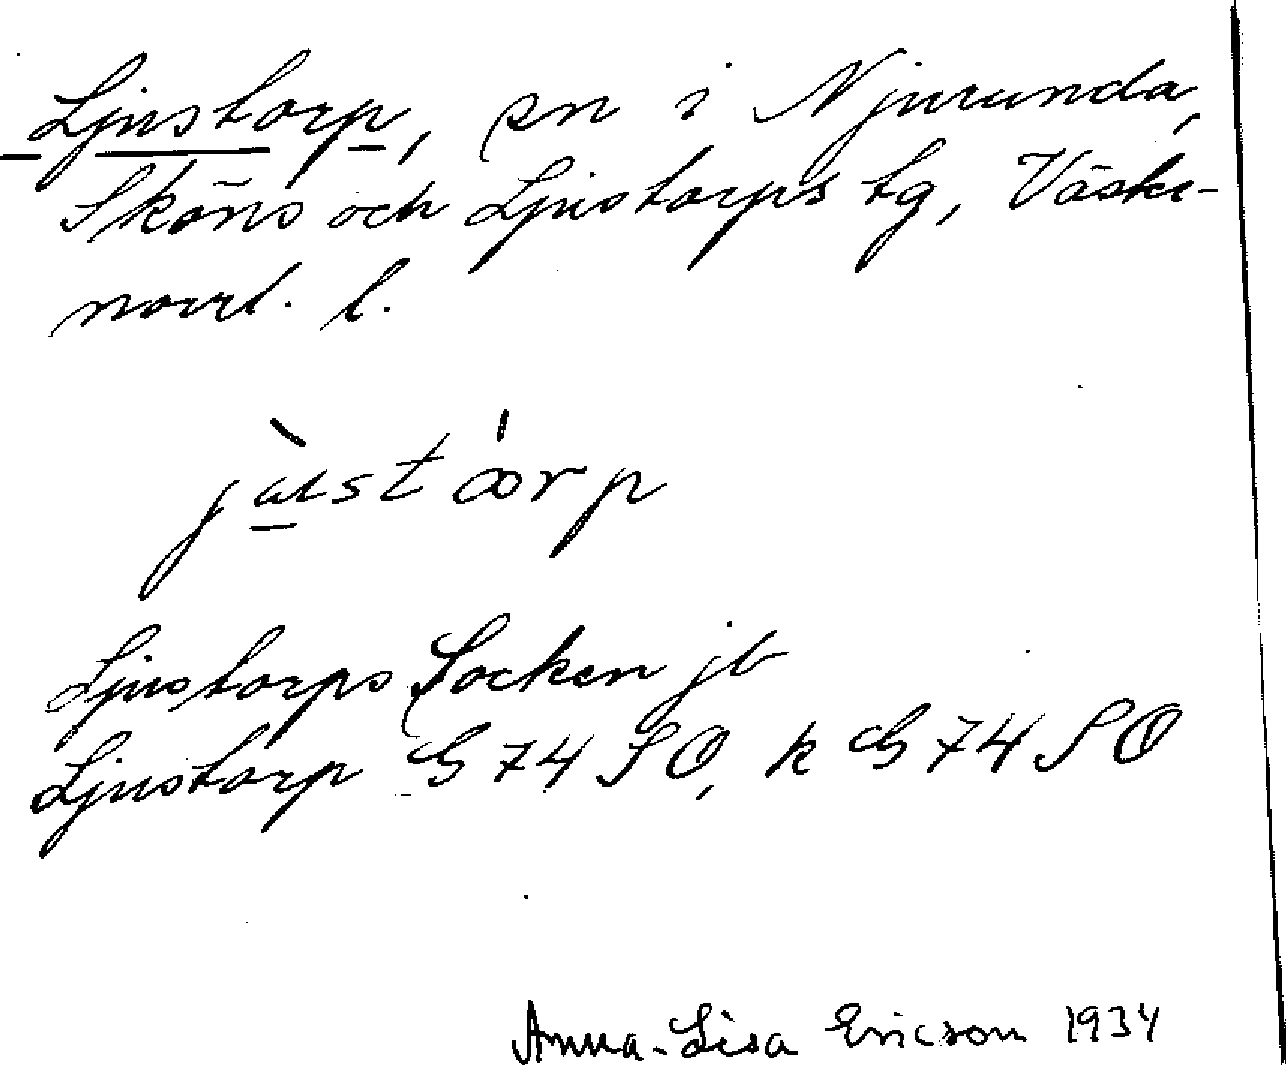 Ljustorp, sn i Njurunda,
Sköns och Ljustorps tg, Väster-
norrl. l.
jùstórp
Ljustorps Socken jb
Ljustorp G 74 SO, k G 74 SO
Anna-Lisa Ericson 1934